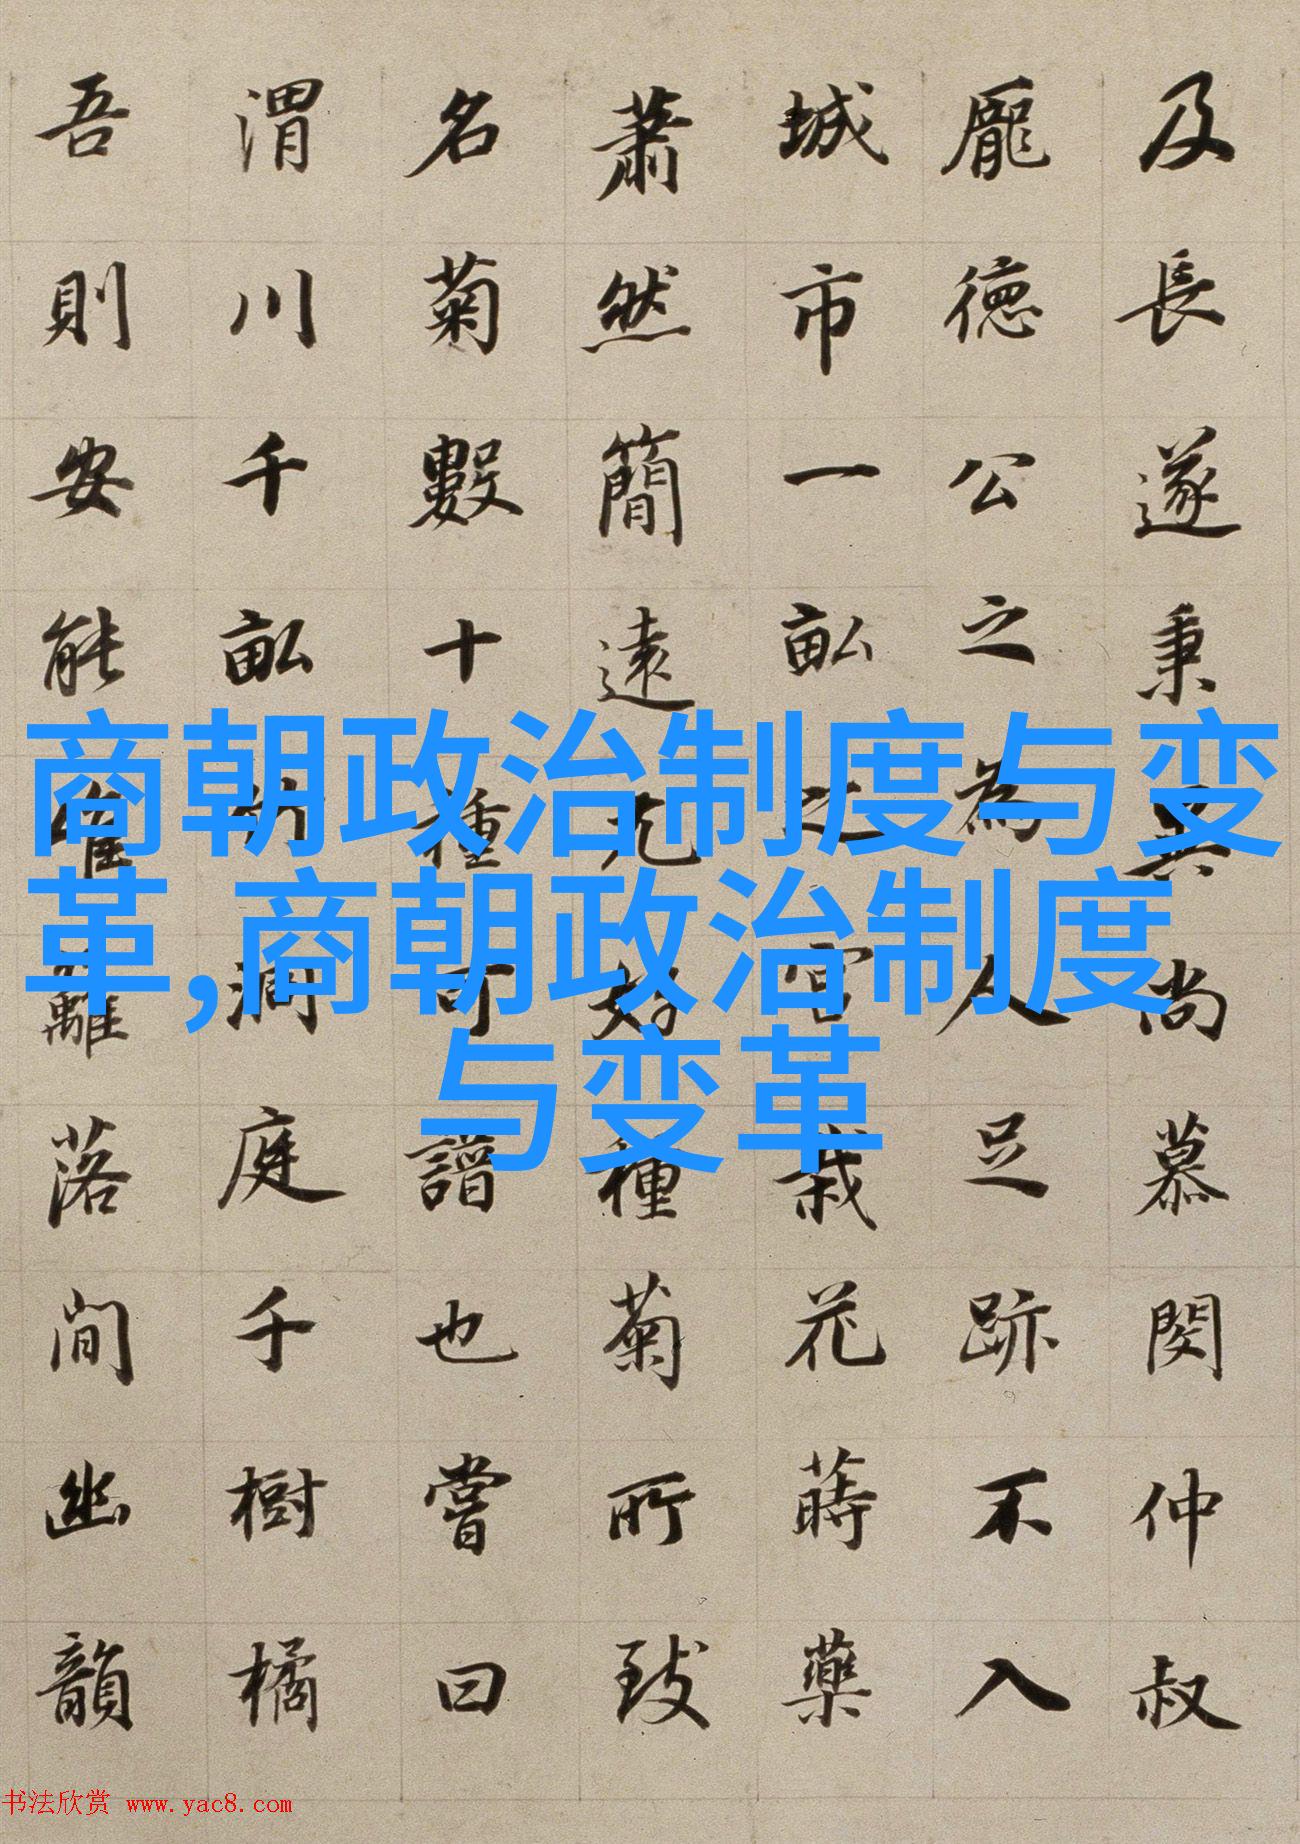 及長遂秉異尚慕閔仲叔
龐徳公之為人足跡不入
城市一畝之宮栽花蒔藥
蕭然簡遠尤好種菊所致
名菊數十種可譜也嘗曰
渭川千畝竹洞庭千樹橘
吾則安能唯籬落間幽韻
商朝政治制度与变
革,商朝政治制度
与变革
书法欣赏 www.yac8.com